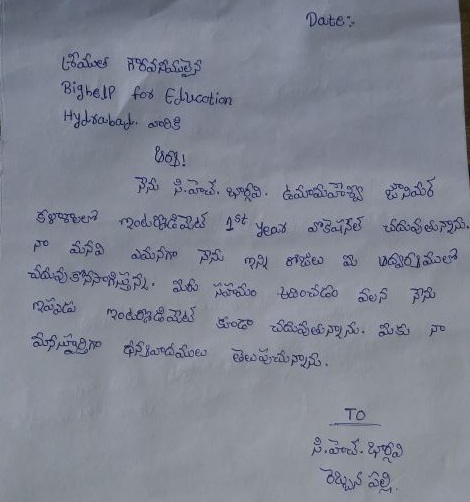 Date:-
శ్రీయుత గౌరవనీయులైన
Bighelp for Education
Hydrabad. వారికి
ఆర్యా!
నేను సి.హెచ్. భార్గవి. ఉమామహేశ్వ జూనియర్
కళాశాలలో ఇంటర్మీడియేట్ 1st year వొకేషనల్ చదువుతున్నాను.
నా మనవి ఏమనగా నేను ఇన్ని రోజులు మీ ఆధ్వర్యములో
చదువుకొనసాగిస్తున్న. మీరు సహాయం అందించడం వలన నేను
ఇప్పుడు ఇంటర్మీడియెట్ కుడా చదువుతున్నాను. మీకు నా
మనస్పూర్తిగా ధన్యవాదములు తెలుపుచున్నాను.
TO
సి.హెచ్. భార్గవి
రెబ్బన పల్లి.